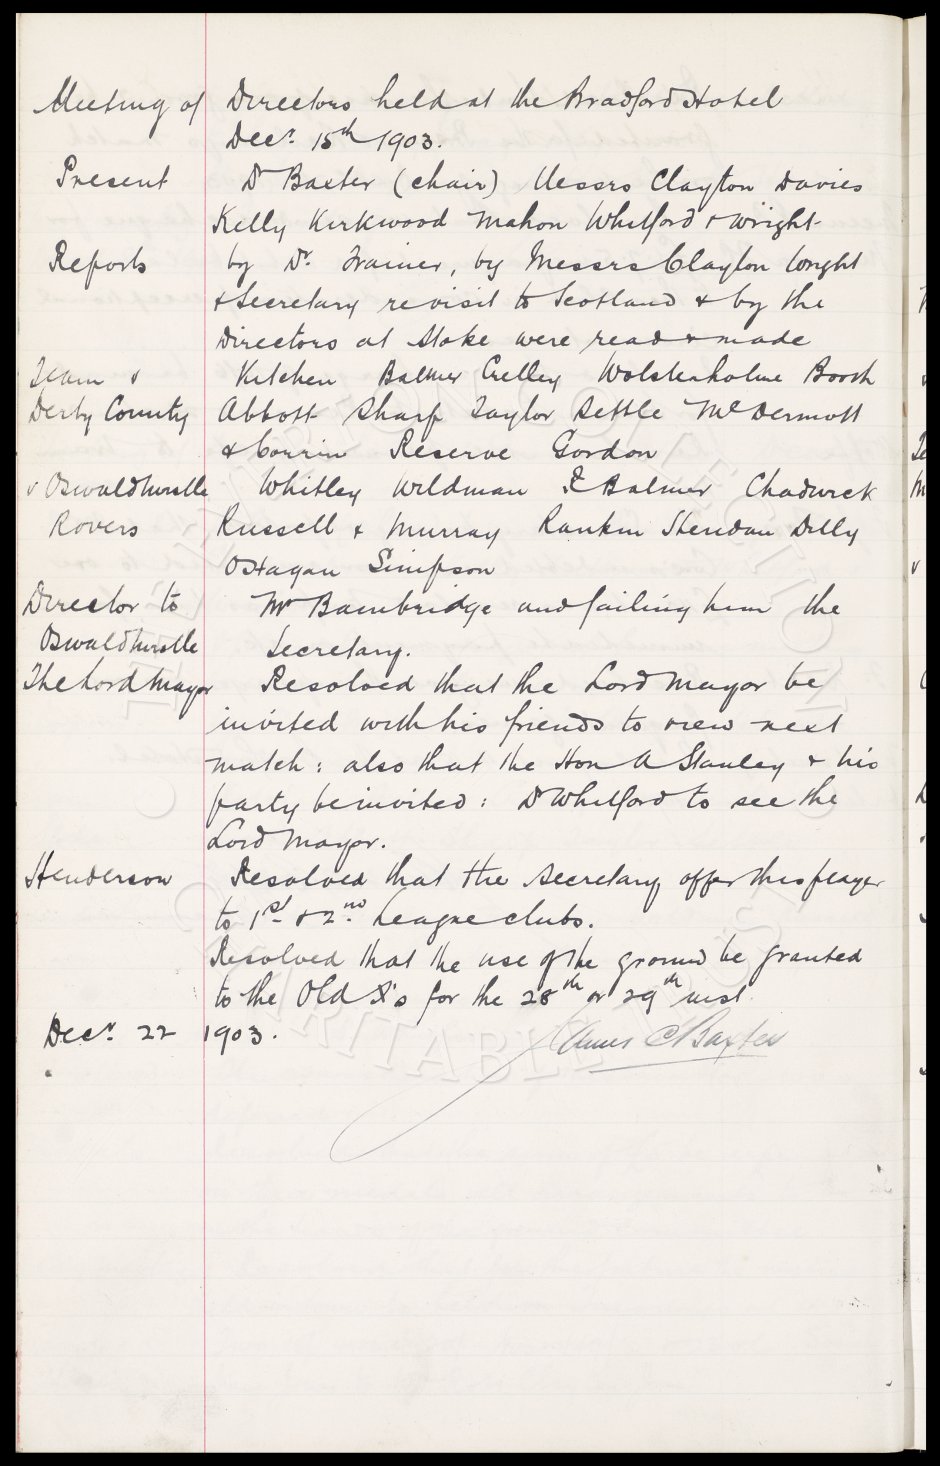 Meeting of Directors held at the Bradford Hotel
Decr. 15th 1903.
Present Dr Baxter (chair) Messrs Clayton Davies
Kelly Kirkwood Mahon Whitford & Wright
Reports by Dr. Trainer, by Messrs Clayton Wright
& Secretary re visit to Scotland & by the
Directors at Stoke were read & made
Team v Kitchen Balmer Crelley Wolstenholme Booth
Derby County Abbott Sharp Taylor Settle McDermott
& Corrin Reserve Gordon
v Oswaldtwistle Whitley Wildman R Balmer Chadwick
Rovers Russell & Murray Rankin Sheridan Dilly
OHagan Simpson
Director to Mr Bainbridge and failing him the
Oswaldtwistle Secretary.
The Lord Mayor Resolved that the Lord Mayor be
invited with his friends to view next
match: also that the Hon A Stanley & his
party be invited: Dr Whitford to see the
Lord Mayor.
Henderson Resolved that the Secretary offer this player
to 1st & 2nd League clubs.
Resolved that the use of the ground be granted
to the Old X's for the 28th or 29th inst.
Decr. 22 1903. James C Baxter
CHARITABLE TRUST